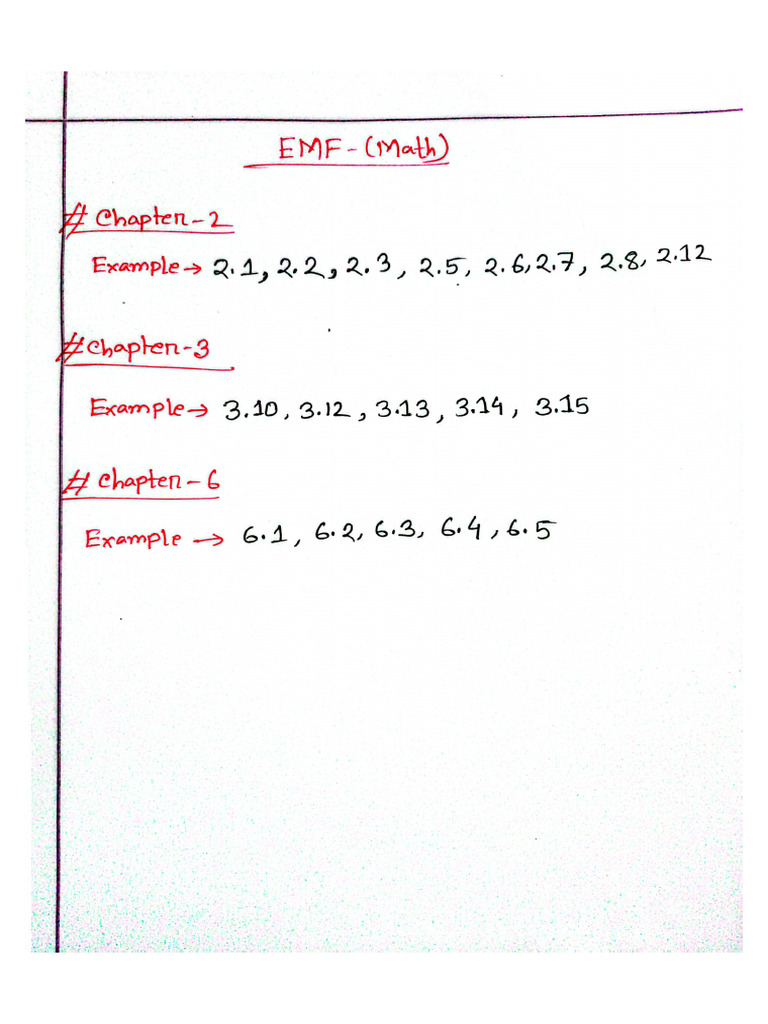 EMF - (Math)
# Chapter - 2
Example → 2.1, 2.2, 2.3, 2.5, 2.6, 2.7, 2.8, 2.12
# Chapter - 3
Example → 3.10, 3.12, 3.13, 3.14, 3.15
# Chapter - 6
Example → 6.1, 6.2, 6.3, 6.4, 6.5